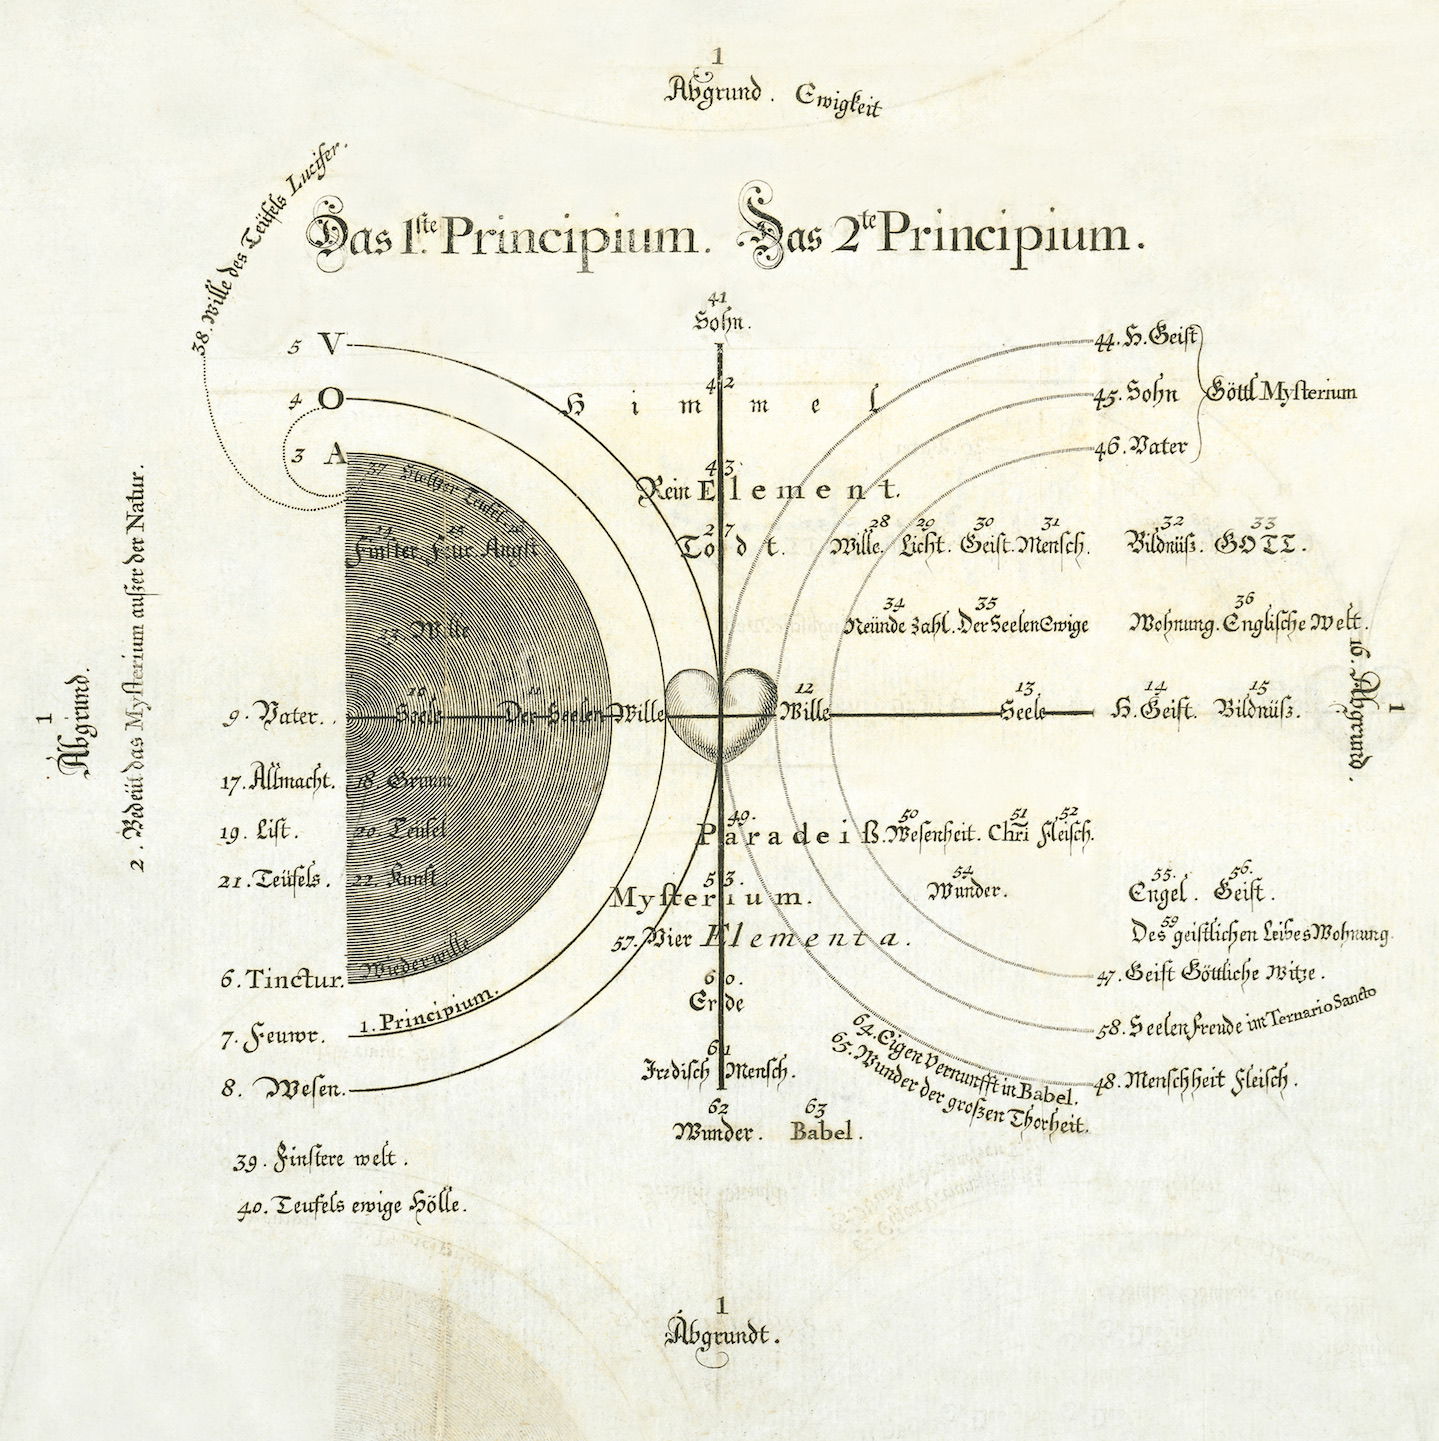 1
Abgrund. Ewigkeit
38. Wille des Teüfels Lucifer.
Das 1.ste Principium. Das 2te Principium.
41
Sohn.
5 V
44. H. Geist
4 O
42
Himmel
45. Sohn
Göttl. Mysterium
3 A
46. Vater
37 Stoltzer Teufel
43
Rein Element.
27 28 29 30 31 32 33
Todt. Wille. Licht. Geist. Mensch. Bildnüß. GOTT.
Finster Feur Angst
34 35 36
Neünde Zahl. Der Seelen Ewige Wohnung. Englische Welt.
Wille
1
Abgrund.
2. Bedeüt das Mysterium außer der Natur.
10 11 12 13 14 15
9. Vater. Seele Der Seelen Wille Wille Seele H. Geist. Bildnüß.
16. Abgrund.
1
17. Allmacht. 18. Grimm
19. List. 20. Teufel
21. Teüfels. 22. Kunst.
49. 50 51 52
Paradeiß. Wesenheit. Chri Fleisch.
53. 54 55. 56.
Mysterium. Wunder. Engel. Geist.
57. Vier Elementa.
59
Des geistlichen Leibes Wohnung.
Wiederwille
6. Tinctur.
60.
Erde
47. Geist Göttliche Witze.
1. Principium.
7. Feuwr.
58. Seelen freude im Ternario Sancto
64. Eigen Vernunfft in Babel.
65. Wunder der großen Thorheit.
61
Irrdisch Mensch.
8. Wesen.
48. Menschheit Fleisch.
62 63
Wunder. Babel.
39. Finstere welt.
40. Teufels ewige Hölle.
1
Abgrundt.